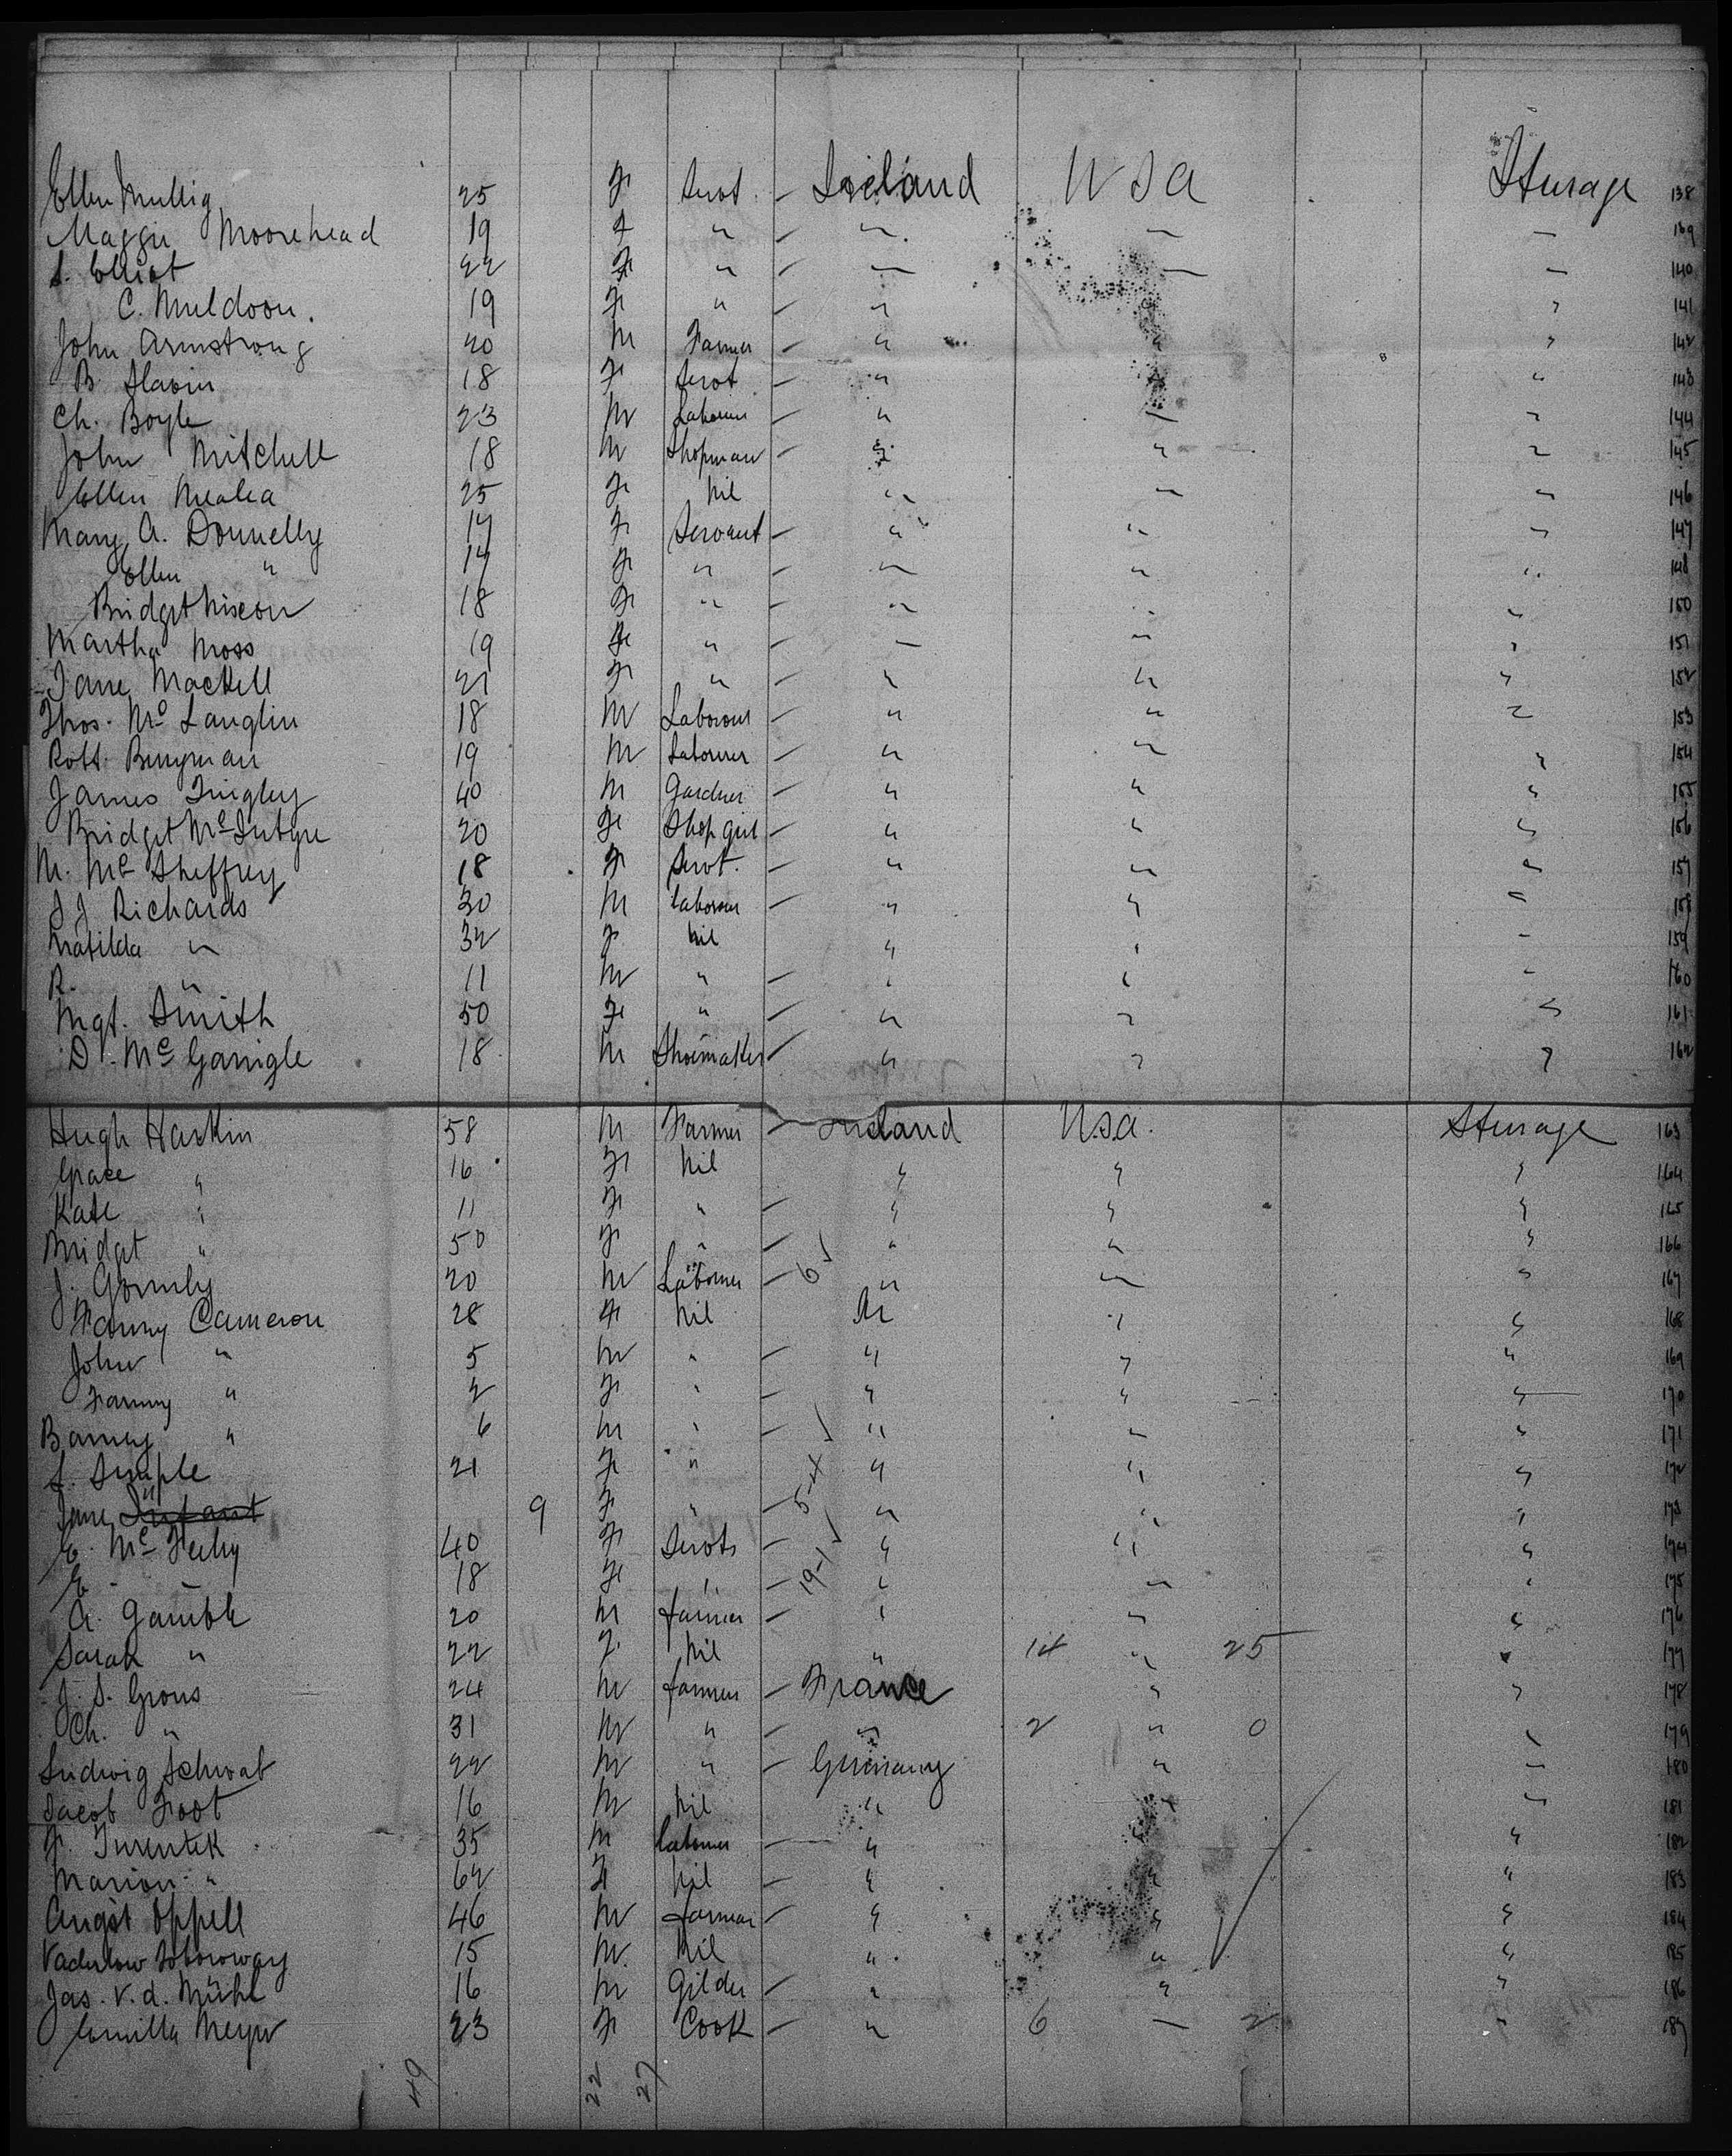 Ellen Mullig 25 F Servt. Ireland USA Steerage 138
Maggie Moorehead 19 F " " " " 139
S. Elliot 22 F " " " " 140
C. Muldoon. 19 F " " " " 141
John Armstrong 20 M Farmer " " " 142
B. Slavin 18 F Servt " " " 143
Ch. Boyle 23 M Labourer " " " 144
John Mitchell 18 M Shopman " " " 145
Ellen 25 F Nil " " " 146
Mary A. Donnelly 17 F Servant " " " 147
Ellen " 17 F " " " " 148
Bridget 18 F " " " " 150
Martha Moss 19 F " " " " 151
Jane Mackell 21 F " " " " 152
Thos. Mc Lauglin 18 M Labourer " " " 153
Robt. Berryman 19 M Labourer " " " 154
James 40 M Gardner " " " 155
Bridget Mc Intyre 20 F Shop girl " " " 156
M. Mc Sheffrey 18 F Servt. " " " 157
J J Richards 30 M labourer " " " 158
Matilda " 32 F Nil " " " 159
R. " 11 M " " " " 160
Mgt. Smith 50 F " " " " 161
D. Mc Garrigle 18 M Shoemaker " " " 162
Hugh Harkin 58 M Farmer Ireland U.S.a. Steerage 163
Grace " 16 F Nil " " " 164
Kate " 11 F " " " " 165
Bridget " 50 F " " " " 166
J. Gormley 20 M Labourer 6 " " " 167
Fanny Cameron 28 F Nil " " 168
John " 5 M " " " " 169
Fanny " 2 F " " " " 170
Barney " 6 M " " " " 171
S. Semple 21 F " " " " 172
Jane " Infant 9 F " 5-4 " " " 173
E. Mc Feely 40 F Servts " " " 174
E. " 18 F " 19-1 " " " 175
A. Gamble 20 M farmer " " " 176
Sarah " 22 F. Nil " 14 " 25 " 177
J. S. Grous 24 M farmer France " " 178
Ch. " 31 M " " 2 " 0 " 179
Ludwig Schwab 22 M " Germany " " 180
Jacob Foot 16 M Nil " " " 181
F. 35 M labourer " " " 182
Marion " 62 F Nil " " " 183
August Oppell 46 M farmer " " " 184
15 M. Nil " " " 185
Jas. v. d. Mühl 16 M Gilder " " " 186
Camilla Meyer 23 F Cook " 6 " 2 " 187
49 22 27